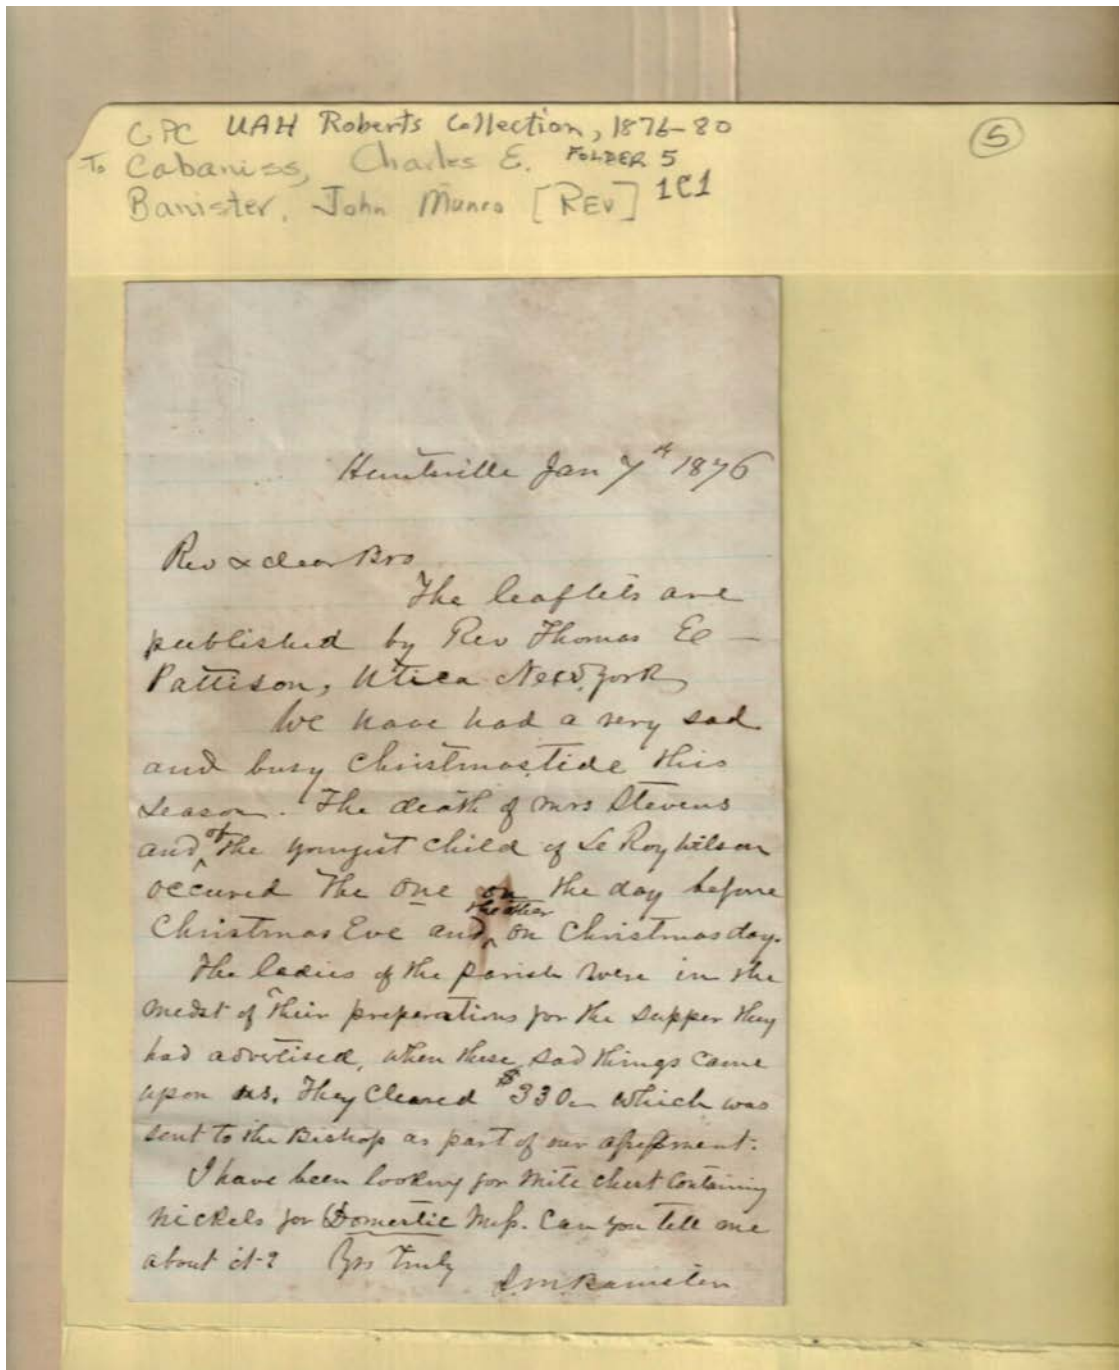 CPC UAH Roberts Collection, 1876-80
5
To Cabaniss, Charles E. FOLDER 5
Banister, John Munro [REV] 1C1
Huntsville Jan 7th 1876
Rev & dear Bro
The leaflets are
published by Rev Thomas
Pattison, Utica New York
We have had a very sad
and busy Christmastide this
season. The death of Mrs Stevens
and of the youngest child of Le Roy Wilson
occured the one on the day before
Christmas Eve and the other on Christmas day.
The ladies of the parish were in the
midst of their preparations for the supper they
had advertised, when these sad things came
upon us. They cleared $330 which was
sent to the Bishop as part of our assessment.
I have been looking for mite chest containing
nickels for Domestic Miss. Can you tell me
about it? Yrs Truly
J.M. Banister